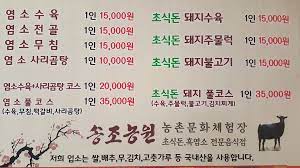 염소수육 1인 15,000원
염소전골 1인 15,000원
염소무침 1인 15,000원
염소 사리곰탕 1인 10,000원
염소수육+사리곰탕 코스 1인 20,000원
염소풀코스 1인 35,000원
(수육,무침,떡갈비,사리곰탕)
초식돈 돼지수육 1인 15,000원
초식돈 돼지주물럭 1인 15,000원
초식돈 돼지불고기 1인 15,000원
초식돈 돼지 풀코스 1인 35,000원
(수육,주물럭,불고기,김치찌개)
송조농원
농촌문화체험장
초식돈,흑염소 전문음식점
저희 업소는 쌀,배추,무,김치,고춧가루 등 국내산을 사용합니다.